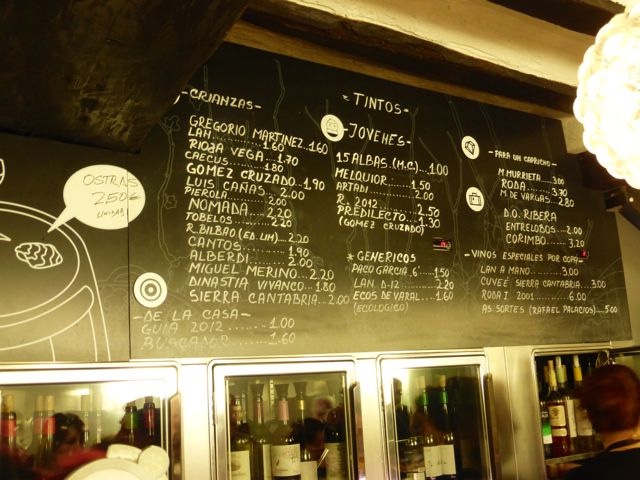 OSTRAS
2,50€
UNIDAD
-CRIANZAS-
GREGORIO MARTINEZ..1.60
LAN.......1.60
RIOJA VEGA...1.70
CAECUS.......1.80
GOMEZ CRUZADO..1.90
LUIS CAÑAS...2.00
PIEROLA......2.00
NOMADA.....2.20
TOBELOS......2.20
R. BILBAO (ED LIM)...2.20
CANTOS........1.90
ALBERDI.......2.00
MIGUEL MERINO..2.20
DINASTIA VIVANCO..1.80
SIERRA CANTABRIA..2.00
-DE LA CASA-
GUIA 2012.......1.00
BUSCADOR......1.60
*TINTOS-
-JOVENES-
15 ALBAS.(M.C.)...1.00
MELQUIOR.....1.50
ARTADI.......2.00
R. 2012......2.50
PREDILECTO...1.30
(GOMEZ CRUZADO)
*GENERICOS
PACO GARCIA "6"...1.50
LAN D-12.......2.20
ECOS DE VARAL..1.60
(ECOLOGICO)
-PARA UN CAPRICHO-
M MURRIETA....3.00
RODA.........3.70
M. DE VARGAS...2.80
D.O. RIBERA
ENTRELOBOS....2.00
CORIMBO......3.20
-VINOS ESPECIALES POR COPA-
LAN A MANO......3.00
CUVEÉ SIERRA CANTABRIA...3.00
RODA I 2001.......6.00
AS SORTES (RAFAEL PALACIOS)...5.00